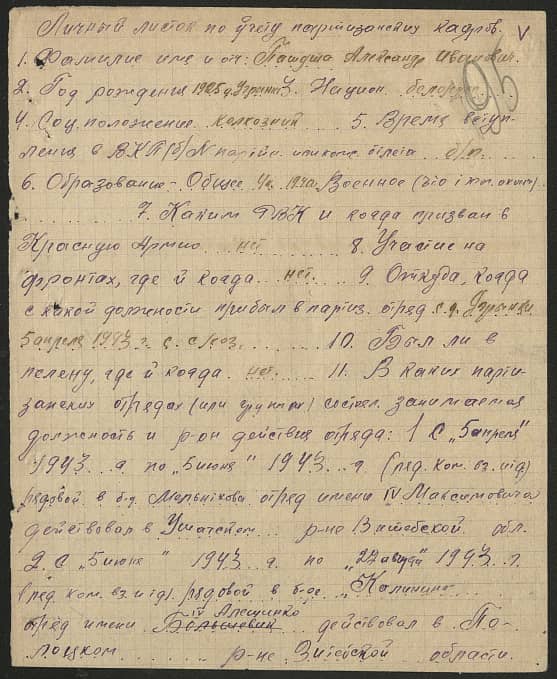 Личный листок по учету партизанских кадров. V
1. Фамилие имя и от: Пашута Александр Иванович.
96
2. Год рождения 1925 д. 3. Национ. белорус
4. Соц. положение колхозник 5. Время вступ-
ления в ВКП(б) N партийн. или комс. билета б/п.
6. Образование - Общее 4 кл. Военное (что и когда окончил)
7. Каким РВК и когда призван в
Красную Армию нет 8. Участие на
фронтах, где и когда нет. 9. Откуда, когда
с какой должности прибыл в партиз. отряд с д.
5 апреля 1943 г. с. 10. Был ли в
плену, где и когда нет. 11. В каких парти-
занских отрядах (или группах) состоял. занимаемая
должность и р-он действия отряда: 1 С "5 апреля"
1943 г по "5 июня" 1943 г (ряд. ком. вз. и т.д)
рядовой в б-д. Мельникова отряд имени IV Максимовича
действовал в Ушачском р-не Витебской обл.
2. С "5 июня" 1943 г. по "27 августа" 1943 г.
(ряд. ком. вз. и т.д) рядовой в б-де. "Калинина
IV Алещенко
отряд имени Большевик действовал в По-
лоцком р-не области.